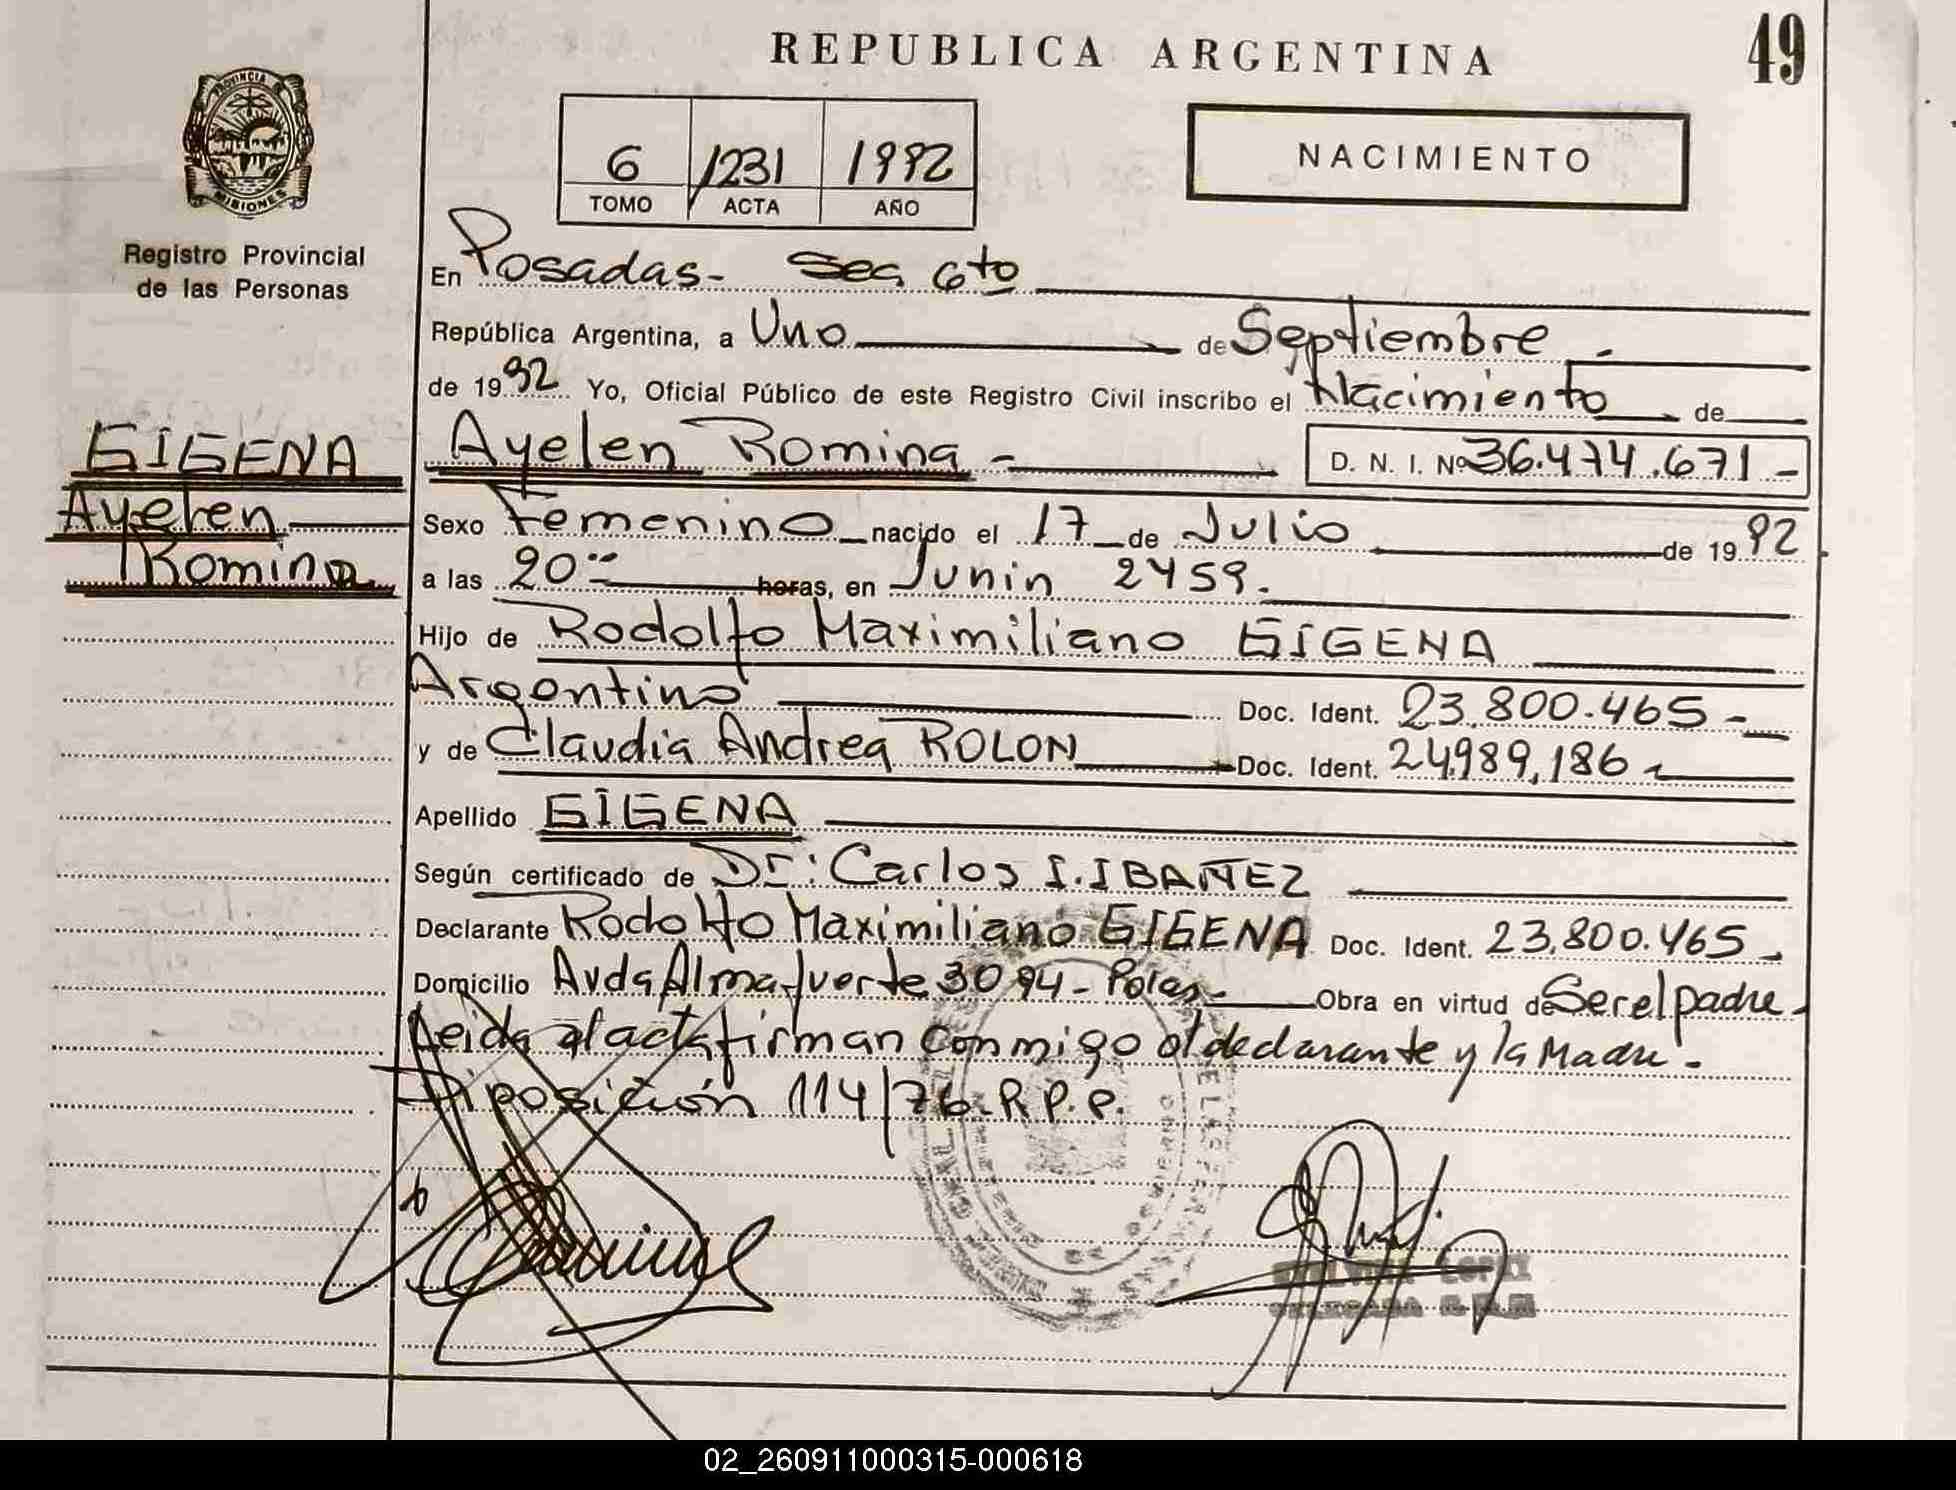 REPUBLICA ARGENTINA
49
PROVINCIA
MISIONES
6 1231 1992
TOMO ACTA AÑO
NACIMIENTO
Registro Provincial
de las Personas
En Posadas - Sec 6to
República Argentina, a Uno de Septiembre -
de 1992 Yo, Oficial Público de este Registro Civil inscribo el Nacimiento de
GIGENA
Ayelen
Romina
Ayelen Romina - D. N. I. Nº 36.474.671 -
Sexo Femenino nacido el 17 de Julio de 1992
a las 20 horas, en Junin 2459.
Hijo de Rodolfo Maximiliano GIGENA
Argentino Doc. Ident. 23.800.465 -
y de Claudia Andrea ROLON Doc. Ident. 24.989,186
Apellido GIGENA
Según certificado de Dr: Carlos I. IBAÑEZ
Declarante Rodolfo Maximiliano GIGENA Doc. Ident. 23,800.465
Domicilio Avda Almafuerte 3094 - Obra en virtud de Ser el padre -
Leida el acta firman conmigo el declarante y la Madre.
Diposición 114/76 - R.P.P.
02_260911000315-000618